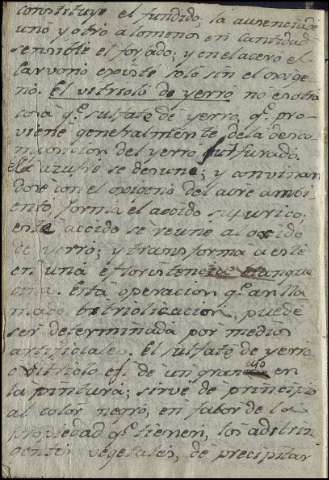 constituye el fundido, la ausencia de
uno y otro a lo menos en cantidad
sensible el forjado; y en el acero el
carvono existe solo sin el oxige
no. el vitriolo de yerro no es otra
cosa q.e sulfate de yerro q.e pro
viene generalmente de la desco
mposicion del yerro sulfurado.
El azufre se desune; y convinan
dose con el oxigeno del aire ambi
ento, forma el acido sulfurico;
este acido se reune al oxido
de yerro; y transforma a este
en una eflorescencia blanque
cina. Esta operacion q.e an lla
mado bitriolicacion, puede
ser determinada por medios
artificiales. el sulfate de yerro
o vitriolo es de un gran uso en
la pintura; sirve de principio
al color negro, en fabor de la
propiedad q.e tienen, los adstrin
gentes vegetales, de precipitar